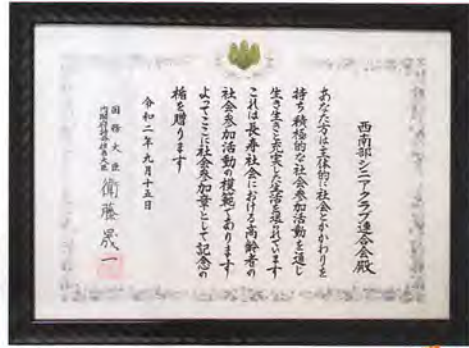 西南部シニアクラブ連合会殿
あなた方は主体的に社会とかかわりを
持ち積極的な社会参加活動を通じ
生き生きと充実した生活を送られています
これは長寿社会における高齢者の
社会参加活動の模範であります
よってここに社会参加章として記念の
楯を贈ります
令和二年九月十五日
国務大臣
内閣府特命担当大臣
衛藤晟一